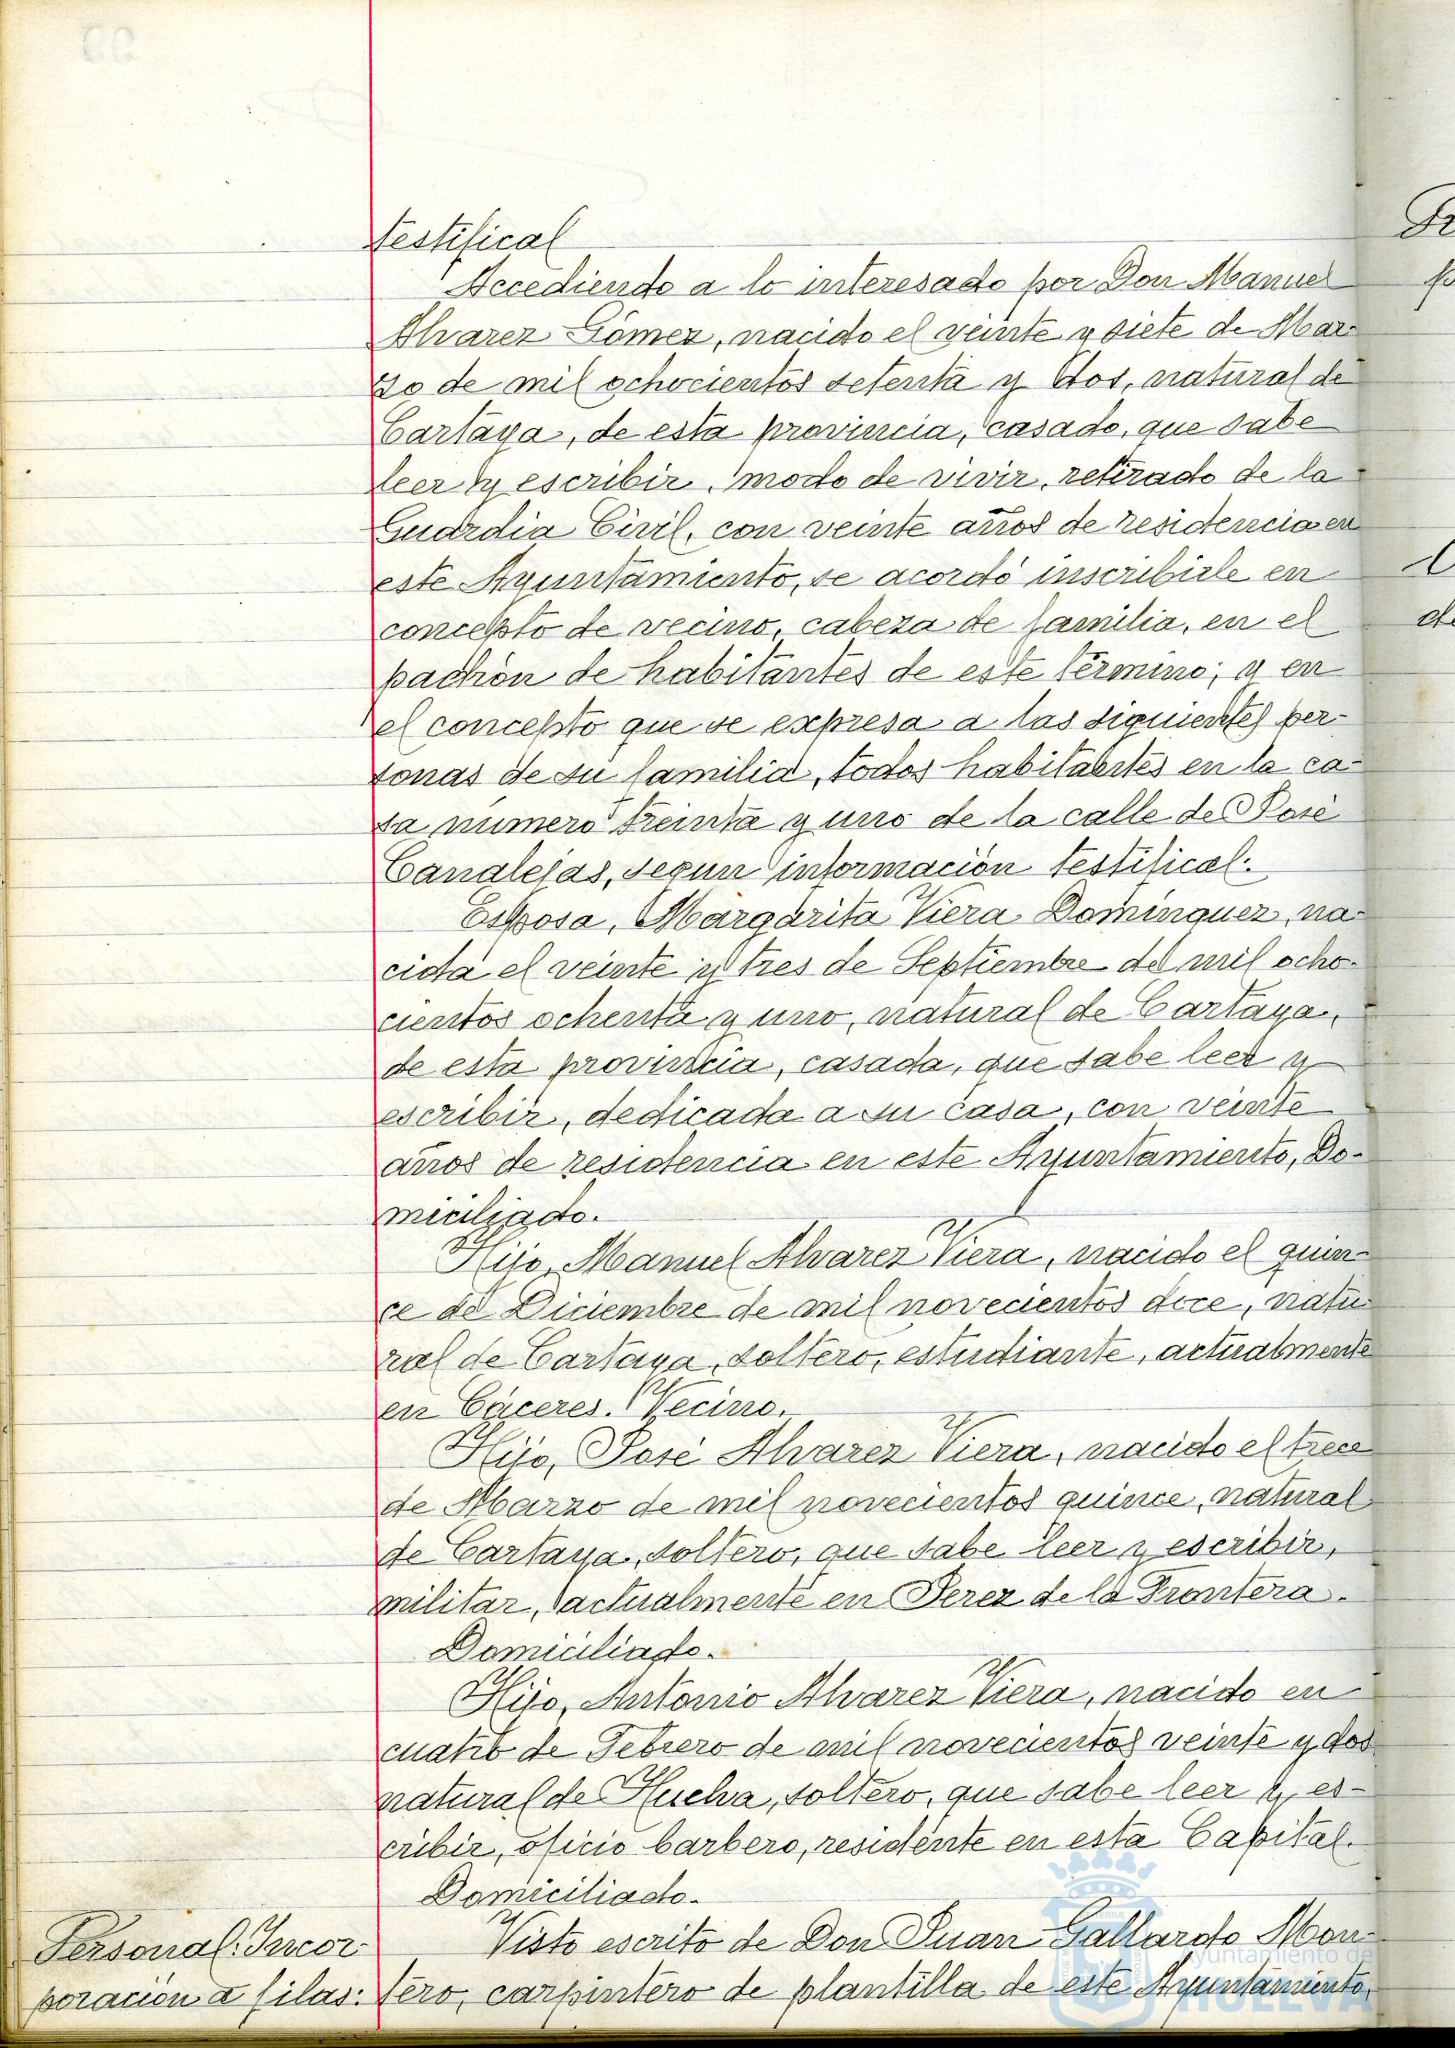 testifical
Accediendo a lo interesado por Don Manuel
Alvarez Gómez, nacido el veinte y siete de Mar-
zo de mil ochocientos setenta y dos, natural de
Cartaya, de esta provincia, casado, que sabe
leer y escribir, modo de vivir, retirado de la
Guardia Civil, con veinte años de residencia en
este Ayuntamiento, se acordó inscribirle en
concepto de vecino, cabeza de familia, en el
padrón de habitantes de este término; y en
el concepto que se expresa a las siguientes per-
sonas de su familia, todos habitantes en la ca-
sa número treinta y uno de la calle de José
Canalejas, segun información testifical:
Esposa, Margarita Viera Domínguez, na-
cida el veinte y tres de Septiembre de mil ocho-
cientos ochenta y uno, natural de Cartaya,
de esta provincia, casada, que sabe leer y
escribir, dedicada a su casa, con veinte
años de residencia en este Ayuntamiento, Do-
miciliado.
Hijo, Manuel Alvarez Viera, nacido el quin-
ce de Diciembre de mil novecientos doce, natu-
ral de Cartaya, soltero, estudiante, actualmente
en Cáceres. Vecino.
Hijo, José Alvarez Viera, nacido el trece
de Marzo de mil novecientos quince, natural
de Cartaya, soltero, que sabe leer y escribir,
militar, actualmente en Jerez de la Frontera.
Domiciliado.
Hijo, Antonio Alvarez Viera, nacido en
cuatro de Febrero de mil novecientos veinte y dos
natural de Huelva, soltero, que sabe leer y es-
cribir, oficio barbero, residente en esta Capital.
Domiciliado.
Personal: Incor-
poración a filas:
Visto escrito de Don Juan Gallardo Mon-
tero, carpintero de plantilla de este Ayuntamiento,
Ayuntamiento de
HUELVA